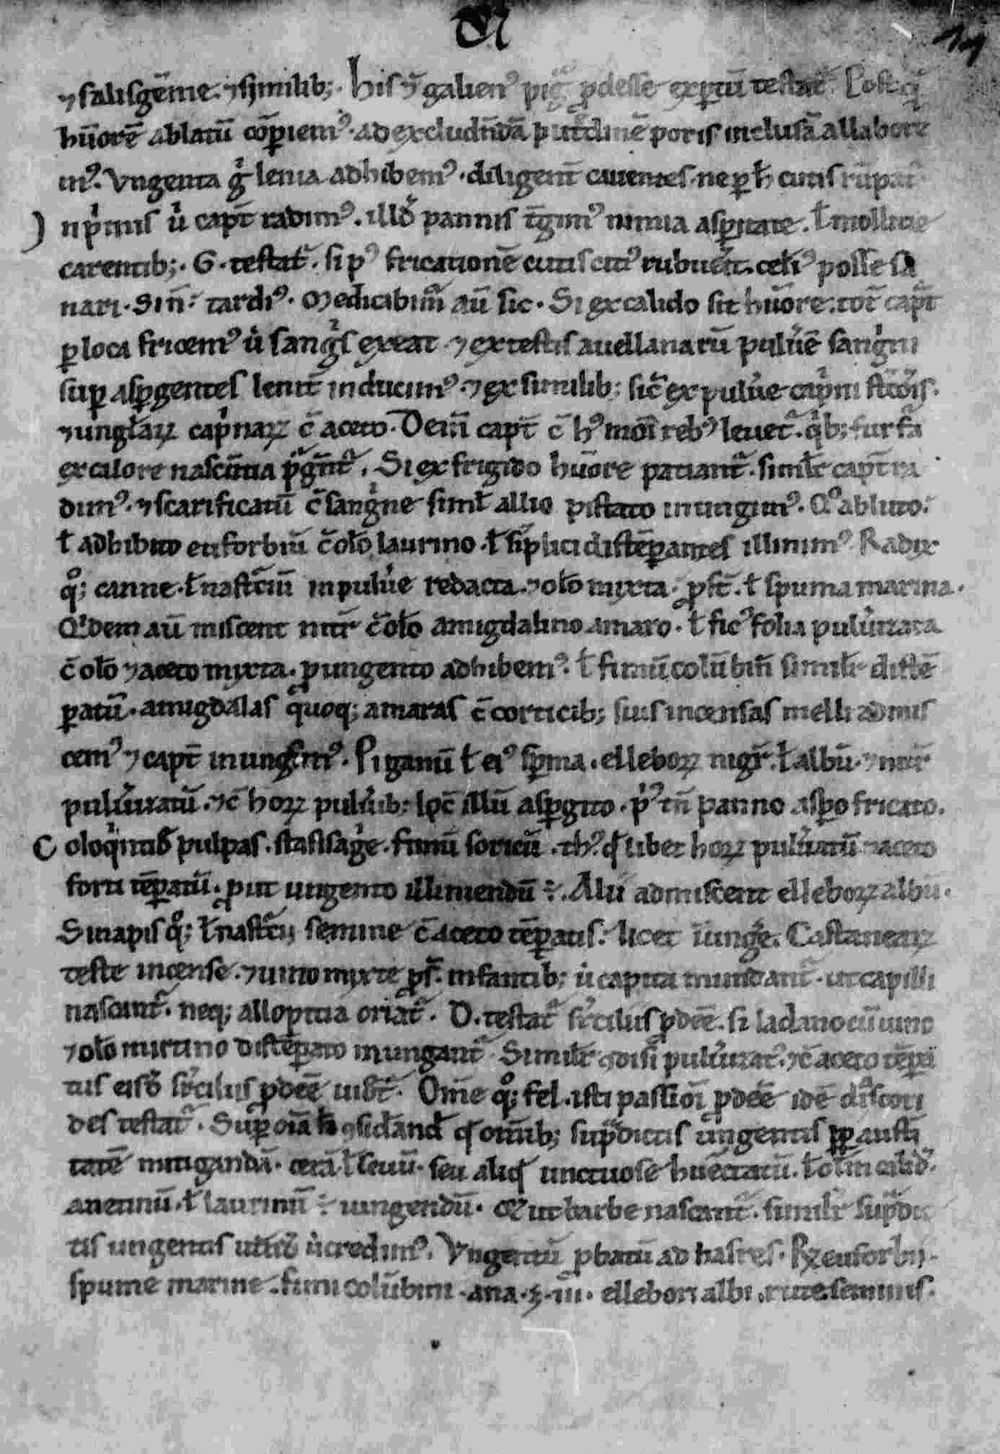 N
11
⁊ salisgēme. ⁊ similib;. His ⁊ galienꝰ pꝰdesse exꝑtū testat᷑. Postqͣ
hūorē ablatū coꝑiemꝰ. ad excludn̄dā putͥdinē poris inclusā allabore
mꝰ. Vngenta gͦ lenia adhibemꝰ. diligent̄ cauentes. ne ꝑ h̄ cutis rūpat᷑
Inpͥmis ů capt̄ radimꝰ. illḋ pannis t̄gimꝰ nimia asꝑitate. ł mollicie
carentib;. G. testat᷑. si pꝰ fricationē cutis citiꝰ rubuerit. celiꝰ posse sa
nari. Sin̄. tardiꝰ. Medicabimͬ aū sic. Si ex calido sit hūore. tot̄ capt̄
ꝑ loca fricemꝰ ů sangͥs exeat. ⁊ ex testis auellanarū puluͤe sangͥni
suꝑ asꝑgentes lenit̄ inducimꝰ. ⁊ ex similib; sic̄ ex puluͤe capͥni st̄cois.
⁊ unglaꝝ capͥnaꝝ c̄ aceto. Dem̄ capt̄ c̄ hꝰmoī rebꝰ leuet᷑. qͥb; furfa
ex calore nascētia p̄gn̄t᷑. Si ex frigido hūore patiant᷑. similr̄ capt̄ ra
dimꝰ. ⁊ scarificatū c̄ sangͥne siml̄ allio pistato inungimꝰ. Qͦ abluto.
ł adhibito euforbiū c̄ olō laurino. ł sīplici distēꝑantes illinimꝰ. Radix
qͦ; canne. ł nastc̄iū in puluͤe redacta. ⁊ olō mixta. ꝓst̄. ł spuma marina.
Qͥdem aū miscent nitͬ c̄ olō amigdalino amaro. ł ficꝰ folia puluͤizata
c̄ olō ⁊ aceto mixta. ꝓ ungento adhibemꝰ. ł fimū colūbin̄ similr̄ distē
ꝑatū. amigdalas quoq; amaras c̄ corticib; suis incensas melli admis
cemꝰ ⁊ capt̄ inungimꝰ. Piganū ł eiꝰ sꝑma. elleboꝝ nigͬ. ł albū. ⁊ nitͬ
puluͤizatū. ⁊ c̄ hoꝝ puluͤib; illū asꝑgito. pͥꝰ tn̄ panno asꝑo fricato.
Coloqͥntiḋ pulpas. stafisagͥe. fimū soricū. thꝰ. qḋ libet hoꝝ puluͤatū ⁊ aceto
forti tēꝑatū. ꝓut ungento illiniendū ÷. Alii admiscent elleboꝝ albū.
Sinapis qͦ; ł nastcͬii semine c̄ aceto tēꝑatis. licet iūngͤe. Castaneaꝝ
teste incense. ⁊ uino mixte ꝓs̄t. infantib; ů capita mundant᷑. ut capilli
nascant᷑. neq; allopitia oriat᷑. D. testat᷑ sr̄cilus ꝓdeē. si ladano cū uino
⁊ olō mirtino distēꝑato inungant᷑. Similr̄ puluͤizatꝰ. ⁊ c̄ aceto tēꝑa
tus eisḋ sr̄cilus ꝓdeē uidt᷑. Om̄e qͦ; fel. isti passioī ꝓdeē idē diͣscori
des testat᷑. Suꝑ oīa h̄ ꝯsidāndͫ qḋ om̄ib; supͣdictis ungentis ꝓꝑ austi
tatē mitigandā. cerā. ł seuū. seu aliqḋ unctuose hūectatū. ł
anetinū. ł laurinū ÷ iungendū. Ut barbe nascant᷑. similr̄ supͣdic
tis ungentis ůcredimꝰ. Vngentū ꝓbatū ad hastes. ℞ euforbii.
spume marine. fimi colūbini. ana. ʒ. iii. ellebori albi. rute seminis.